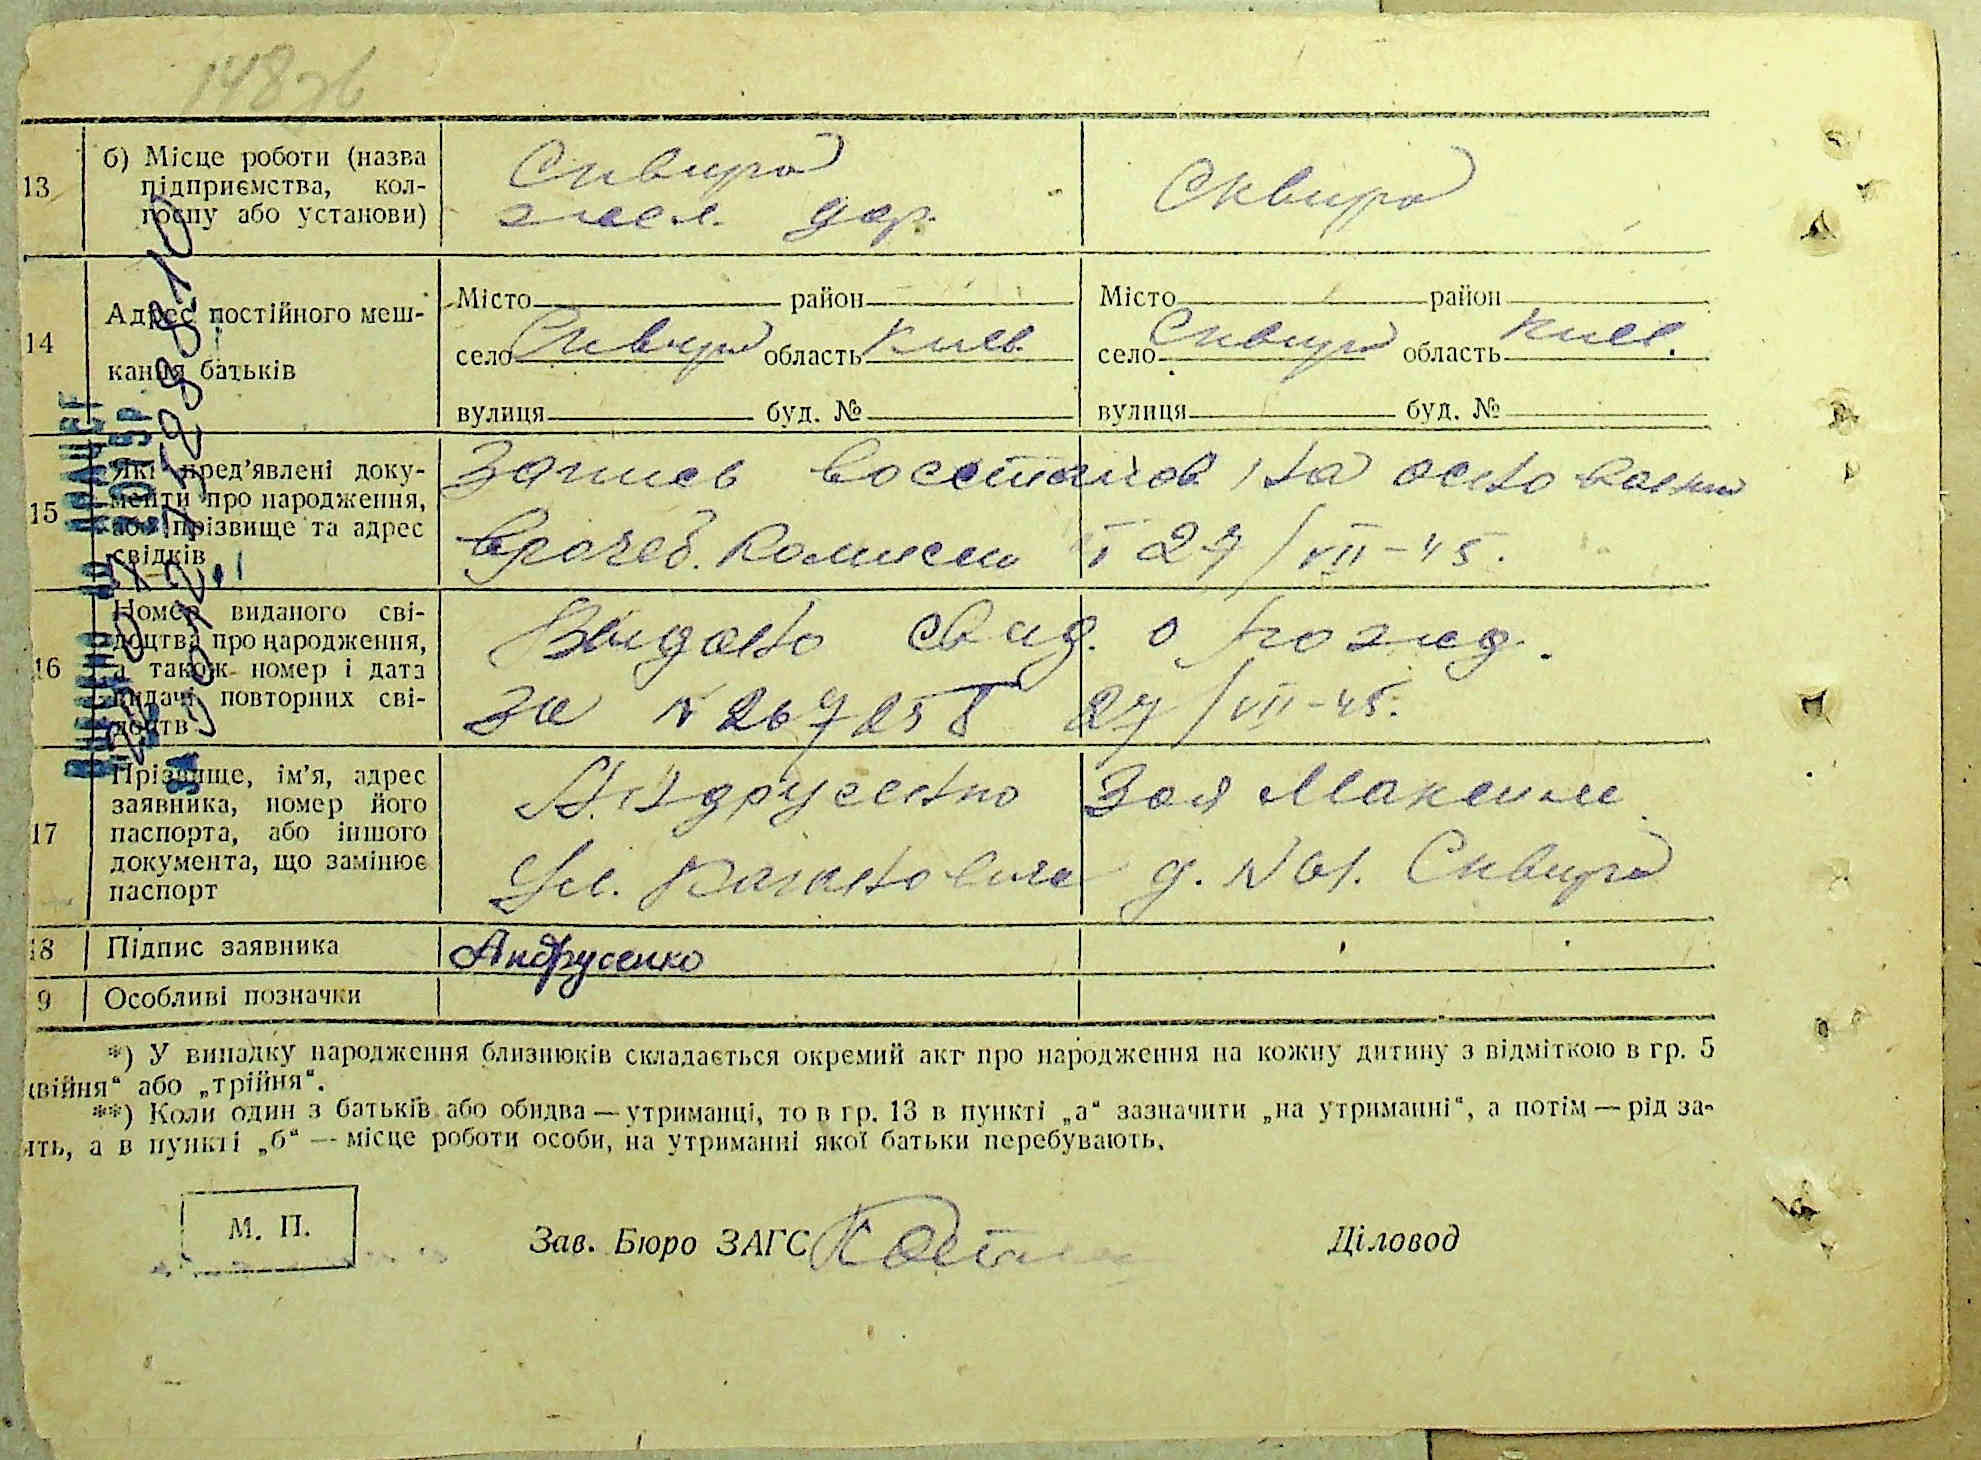 148зв
13
б) Місце роботи (назва
підприємства, кол-
госпу або установи)
Сквира
жел. дор.
Сквира
14
Адрес постійного меш-
кання батьків
Місто район
село Сквира область Киев.
вулиця буд. №
Місто район
село Сквира область Киев.
вулиця буд. №
15
Які пред'явлені доку-
менти про народження,
або прізвище та адрес
свідків
Запись восстанов на основании
Врачеб. Комиссии 27/VII-45.
16
Номер виданого сві-
доцтва про народження,
а також номер і дата
видачі повторних сві-
доцтв
Выдано свид. о рожд.
за № 267258 27/VII-45.
17
Прізвище, ім'я, адрес
заявника, номер його
паспорта, або іншого
документа, що замінює
паспорт
Андрусенко Зоя Максим.
Ул. Кагановича д. № 61. Сквира
18
Підпис заявника
Андрусенко
9
Особливі позначки
*) У випадку народження близнюків складається окремий акт про народження на кожну дитину з відміткою в гр. 5
війня“ або „трійня“.
**) Коли один з батьків або обидва — утриманці, то в гр. 13 в пункті „а“ зазначити „на утриманні“, а потім — рід за-
ять, а в пункті „б“ — місце роботи особи, на утриманні якої батьки перебувають.
М. П.
Зав. Бюро ЗАГС
Діловод